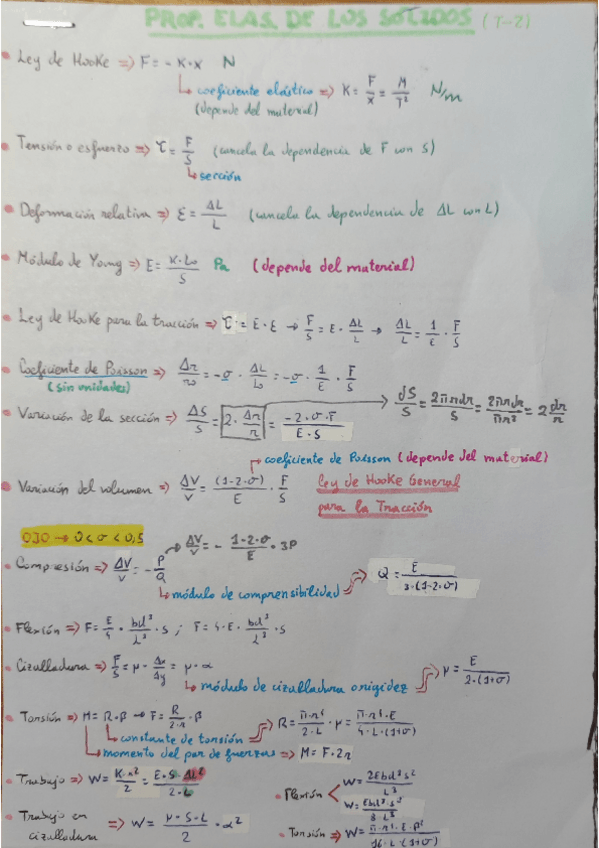 PROP. ELAS. DE LOS SÓLIDOS (T-2)
• Ley de Hooke => F = - K·x N
↳ coeficiente elástico => K = F/x = M/T² N/m
(depende del material)
• Tensión o esfuerzo => τ = F/S (cancela la dependencia de F con S)
↳ sección
• Deformación relativa => ε = ΔL/L (cancela la dependencia de ΔL con L)
• Módulo de Young => E = K·L₀/S Pa (depende del material)
• Ley de Hooke para la tracción => τ = E·ε → F/S = E·ΔL/L → ΔL/L = 1/E · F/S
• Coeficiente de Poisson => Δr/r₀ = -σ · ΔL/L₀ = -σ · 1/E · F/S
(sin unidades)
• Variación de la sección => ΔS/S = 2·Δr/r = -2·σ·F/E·S → dS/S = 2πrdr/S = 2πrdr/πr² = 2 dr/r
↱ coeficiente de Poisson (depende del material)
• Variación del volumen => ΔV/V = (1-2·σ)/E · F/S Ley de Hooke General
para la Tracción
OJO → 0 < σ < 0,5
→ ΔV/V = - 1-2·σ/E · 3P
• Compresión => ΔV/V = - P/Q
↳ módulo de comprensibilidad => Q = E/3·(1-2·σ)
• Flexión => F = E/4 · bd³/L³ · s ; F = 4·E · bd³/L³ · s
• Cizulladura => F/S = μ · Δx/Δy = μ · α
↳ módulo de cizulladura o rigidez => μ = E/2·(1+σ)
• Torsión => M = R·β → F = R/2·r · β
↳ constante de torsión => R = π·r⁴/2·L · μ = π·r⁴·E/4·L·(1+σ)
↳ momento del par de fuerzas => M = F·2r
• Trabajo => W = K·x²/2 = E·S·ΔL²/2·L
• Flexión < W = 2Ebd³s²/L³
W = Ebd³·s²/8·L³
• Trabajo en
cizulladura => W = μ·S·L/2 · α²
• Torsión => W = π·r⁴·E·β²/16·L·(1+σ)